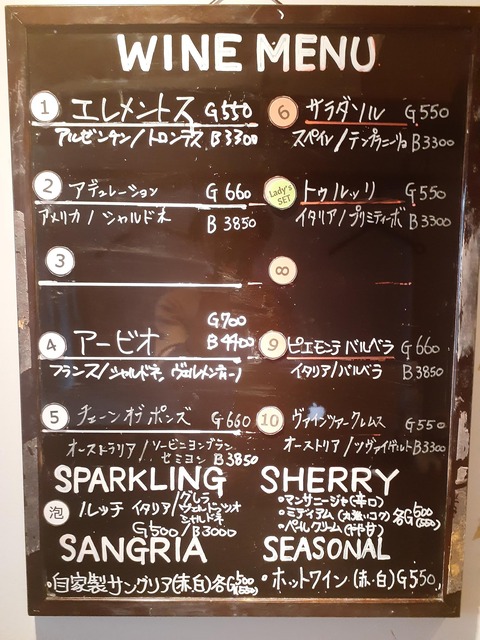 WINE MENU
1 エレメントス G550
アルゼンチン/トロンテス B3300
2 アデュレーション G660
アメリカ/シャルドネ B3850
3
4 アービオ G700 B4400
フランス/シャルドネ、ヴェルメンティーノ
5 チェーンオブポンズ G660
オーストラリア/ソービニヨンブラン
セミヨン B3850
6 サラダソル G550
スペイン/テンプラニーリョ B3300
Lady's SET トゥルッリ G550
イタリア/プリミティーボ B3300
8
9 ピエモンテ バルベラ G660
イタリア/バルベラ B3850
10 ヴァインツァークレムス G550
オーストリア/ツヴァイゲルト B3300
SPARKLING
泡 ルッチ イタリア/グレラ
シャルドネ
G500/B3000
SANGRIA
・自家製サングリア(赤.白)各G500
SHERRY
・マンサニージャ(辛口)
・ミディアム 各G500
・ペールクリーム(やや甘)
SEASONAL
・ホットワイン(赤.白)G550